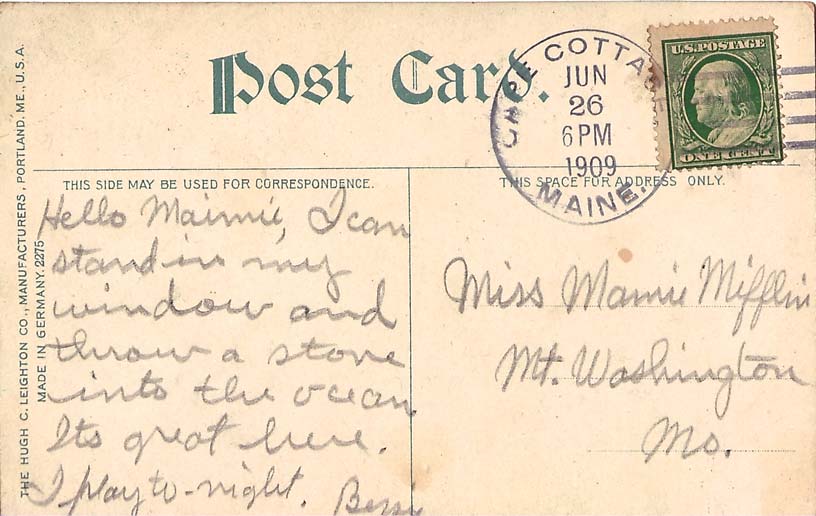 Post Card.
CAPE COTTAGE
JUN
26
6 PM
1909
MAINE.
U.S. POSTAGE
ONE CENT
THIS SIDE MAY BE USED FOR CORRESPONDENCE.
THIS SPACE FOR ADDRESS ONLY.
Hello Maimie, I can
stand in my
window and
throw a stone
into the ocean
Its great here.
I play to-night. Bessie
Miss Mamie Mifflin
Mt. Washington
Mo.
THE HUGH C. LEIGHTON CO., MANUFACTURERS, PORTLAND, ME., U.S.A.
MADE IN GERMANY. 2275